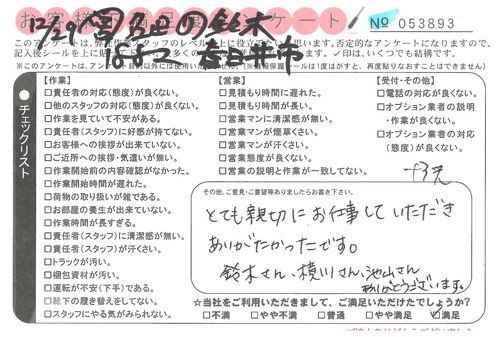 № 053893
このアンケートは、弊社作業スタッフのレベル向上に役立てたいと思います。否定的なアンケートになりますので、
※このアンケートは、アンケート目的以外には使用いたしません。(※情報保護シールは1度はがすと、再度貼りなおすことはできません)
チェックリスト
【作業】
□責任者の対応(態度)が良くない。
□他のスタッフの対応(態度)が良くない。
□作業を見ていて不安がある。
□責任者(スタッフ)に好感が持てない。
□お客様への挨拶が出来ていない。
□ご近所への挨拶・気遣いが無い。
□作業開始前の内容確認がなかった。
□作業開始時間が遅れた。
□荷物の取り扱いが雑である。
□お部屋の養生が出来ていない。
□作業時間が長すぎる。
□責任者(スタッフ)に清潔感が無い。
□責任者(スタッフ)が汗くさい。
□トラックが汚い。
□梱包資材が汚い。
□運転が不安(下手)である。
□靴下の履き替えをしてない。
□スタッフにやる気がみられない。
【営業】
□見積もり時間に遅れた。
□見積もり時間が長い。
□営業マンに清潔感が無い。
□営業マンが煙草くさい。
□営業マンが汗くさい。
□営業態度が良くない。
□営業の説明と作業が一致してない。
【受付・その他】
□電話の対応が良くない。
□オプション業者の説明
・作業が良くない。
□オプション業者の対応
(態度)が良くない。
その他、ご意見・ご要望等ありましたらお書き下さい。
とても親切にお仕事していただき
ありがたかったです。
鈴木さん、横川さん、池山さん
ありがとうございます。
☆当社をご利用いただきまして、ご満足いただけたでしょうか?
□不満 □やや不満 □普通 □やや満足 ☑満足